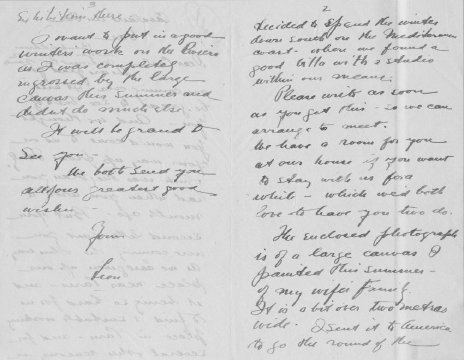 2
Decided to spend the winter
down south on the Mediterranean
coast - where we found a
good villa with a studio
within our means.
Please write as soon
as you get this - so we can
arrange to meet.
We have a room for you
at our house if you want
to stay with us for a
while - which we'd both
love to have you two do.
The enclosed photograph
is of a large canvas I
painted this summer -
of my wife's family.
It is a bit over two metres
wide. I sent it to America
to go the round of the
3
Exhibitions there
I want to put in a good
winters work on the
as I was completely
engrossed by the large
canvas this summer and
didnt do much else.
It will be grand to
see you.
We both send you
all our greatest good
wishes -
Yours
Leon